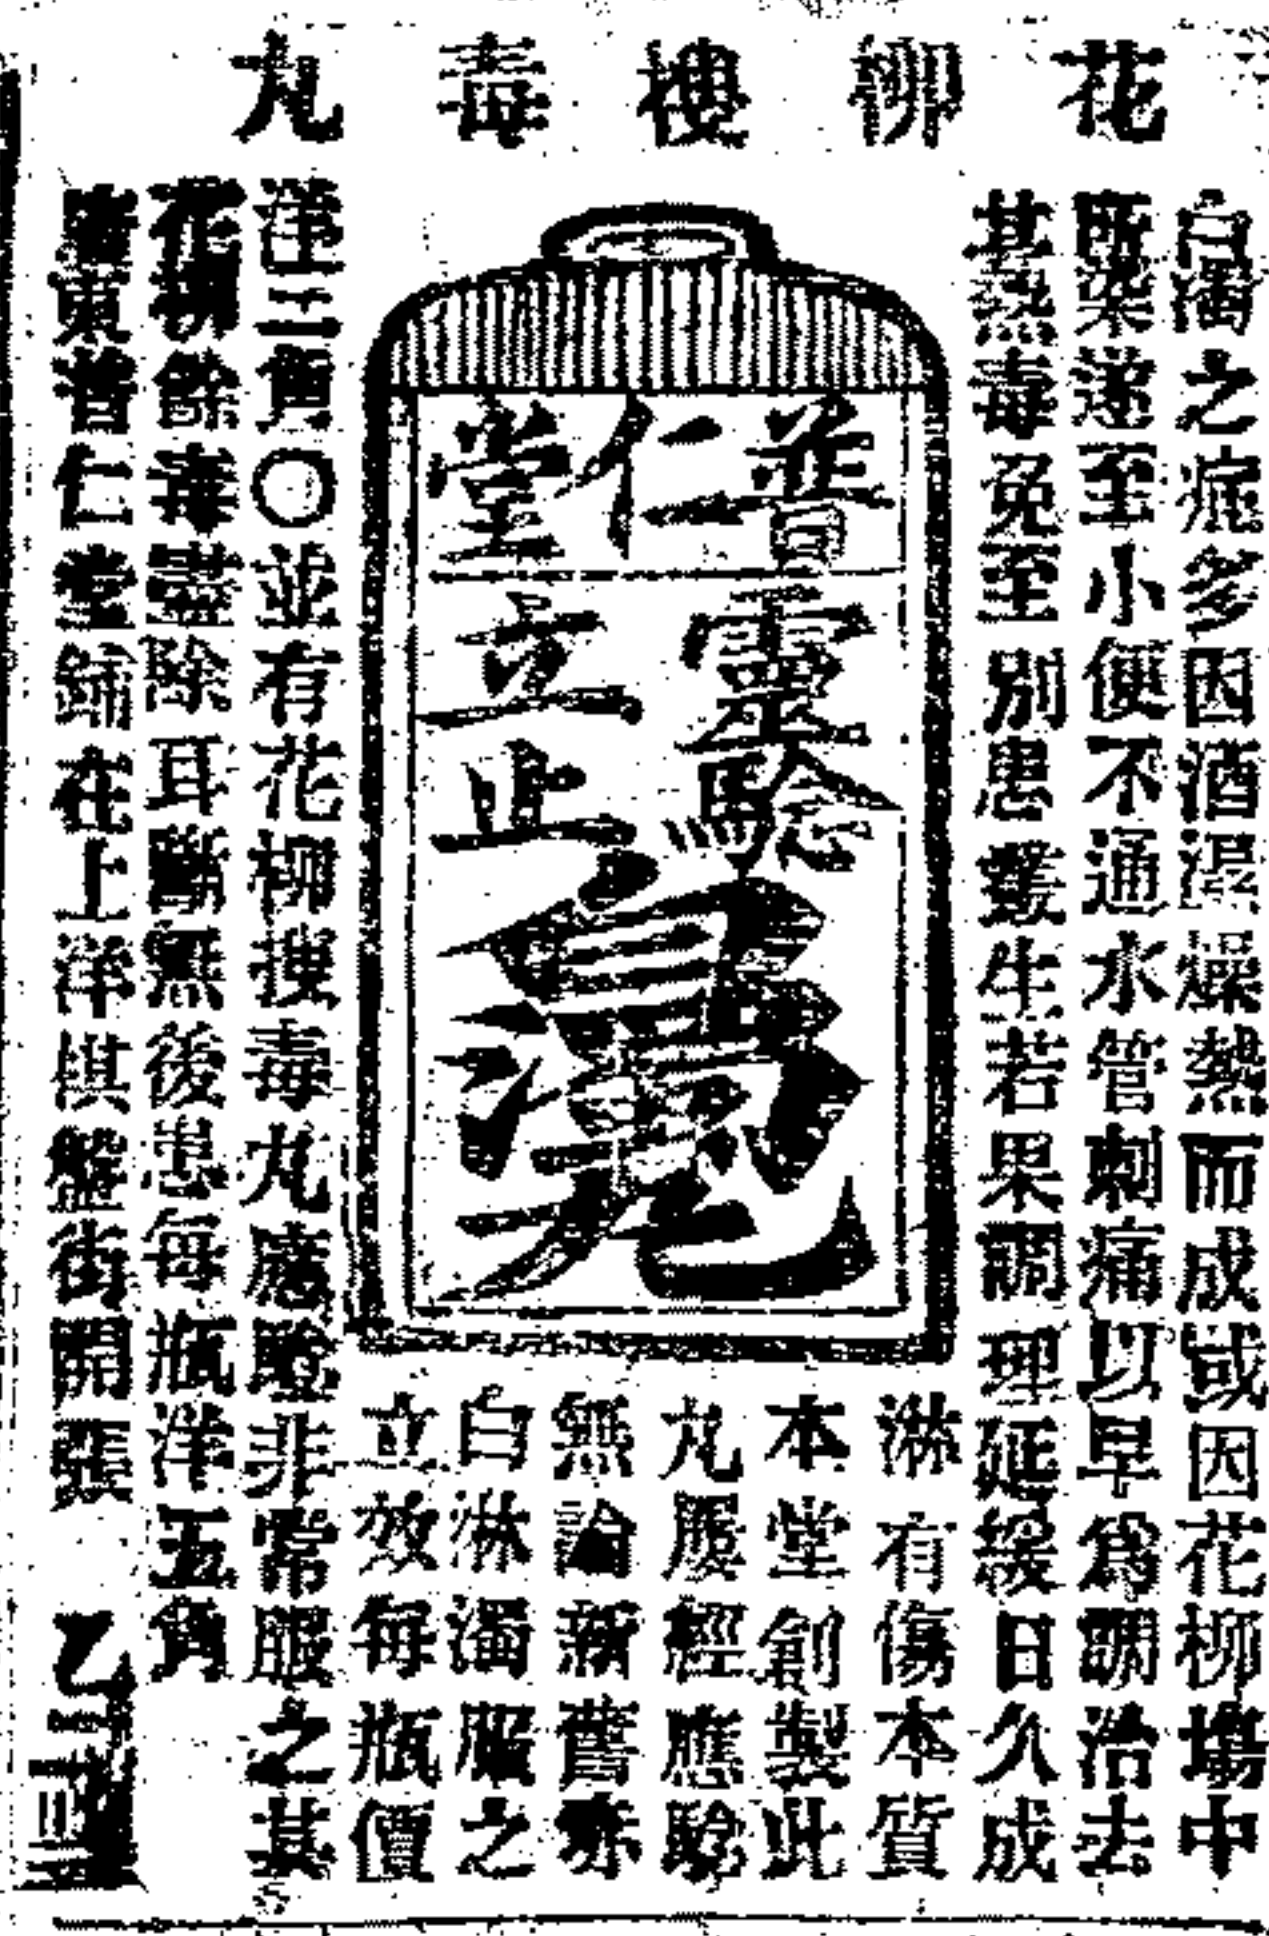 花柳摟毒丸
白濁之症多因酒湿燥熱而成或因花柳塲中
所染遂至小便不通水管刺痛以早爲調治去
其熱毒免至別患叢生若果調理延緩日久成
淋有傷本質
本堂創製此
丸屡經應騐
無論新舊赤
白淋濁服之
立效每瓶價
普仁堂
靈驗
立止
白濁丸
洋三角〇並有花柳搜毒丸應騐非常服之其
花柳餘毒盡除耳斷無後患每瓶洋五角
廣東普仁堂鋪在上洋棋盤街開張